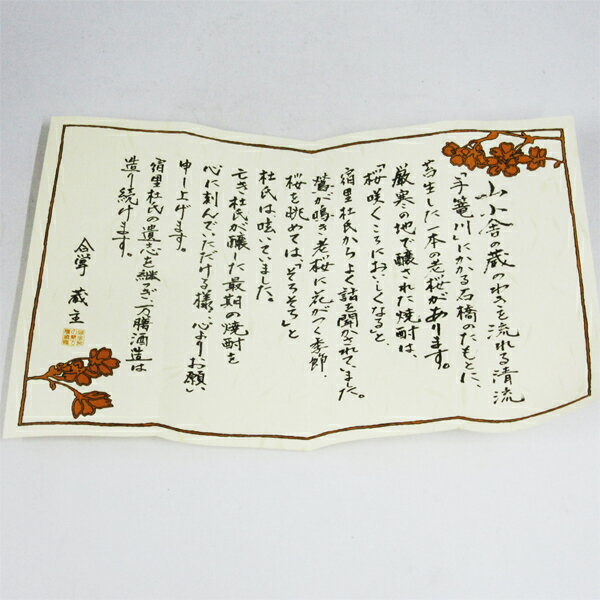 山小舎の蔵のわきを流れる清流
「手篭川」にかかる石橋のたもとに、
萬生した一本の老桜があります。
厳寒の地で醸された焼酎は、
「桜咲くころにおいしくなる」と、
宿里杜氏からよく話を聞かされていました。
鶯が鳴き老桜に花がつく季節、
桜を眺めては、「そろそろ」と
杜氏は呟いていました。
亡き、杜氏が醸した最期の焼酎を
心に刻んでいただける様、心よりお願い
申し上げます。
宿里杜氏の遺志を継ぎ、万膳酒造は
造り続けます。
合掌 蔵主